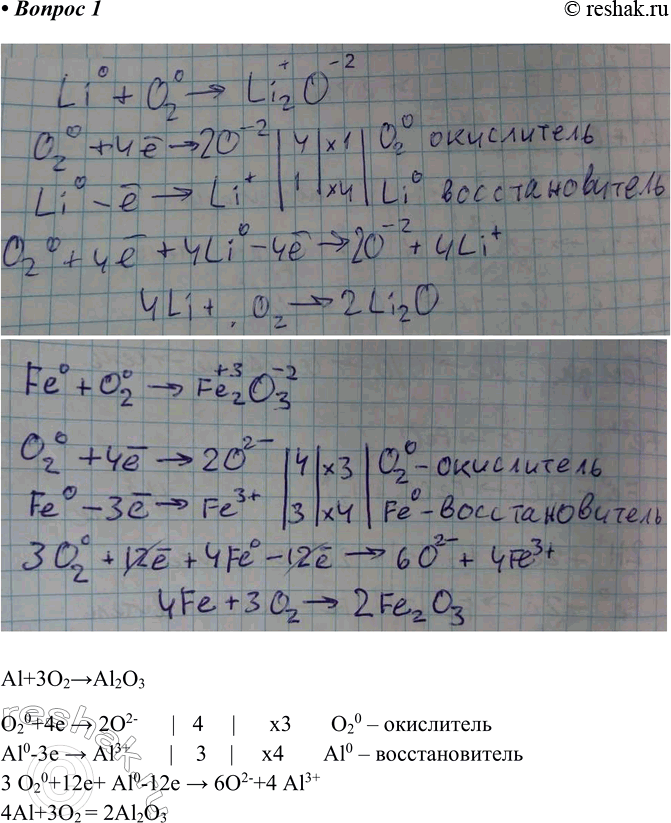 • Вопрос 1
© reshak.ru
Li⁰ + O₂⁰ → Li₂⁺O⁻²
O₂⁰ + 4ē → 2O⁻² | 4 | x1 | O₂⁰ окислитель
Li⁰ - ē → Li⁺ | 1 | x4 | Li⁰ восстановитель
O₂⁰ + 4ē + 4Li⁰ - 4ē → 2O⁻² + 4Li⁺
4Li + O₂ → 2Li₂O
Fe⁰ + O₂⁰ → Fe₂⁺³O₃⁻²
O₂⁰ + 4ē → 2O²⁻ | 4 | x3 | O₂⁰ - окислитель
Fe⁰ - 3ē → Fe³⁺ | 3 | x4 | Fe⁰ - восстановитель
3O₂⁰ + 12ē + 4Fe⁰ - 12ē → 6O²⁻ + 4Fe³⁺
4Fe + 3O₂ → 2Fe₂O₃
Al+3O₂→Al₂O₃
O₂⁰+4e → 2O²⁻ | 4 | x3 O₂⁰ – окислитель
Al⁰-3e → Al³⁺ | 3 | x4 Al⁰ – восстановитель
3 O₂⁰+12e+ Al⁰-12e → 6O²⁻+4 Al³⁺
4Al+3O₂ = 2Al₂O₃
reshak.ru